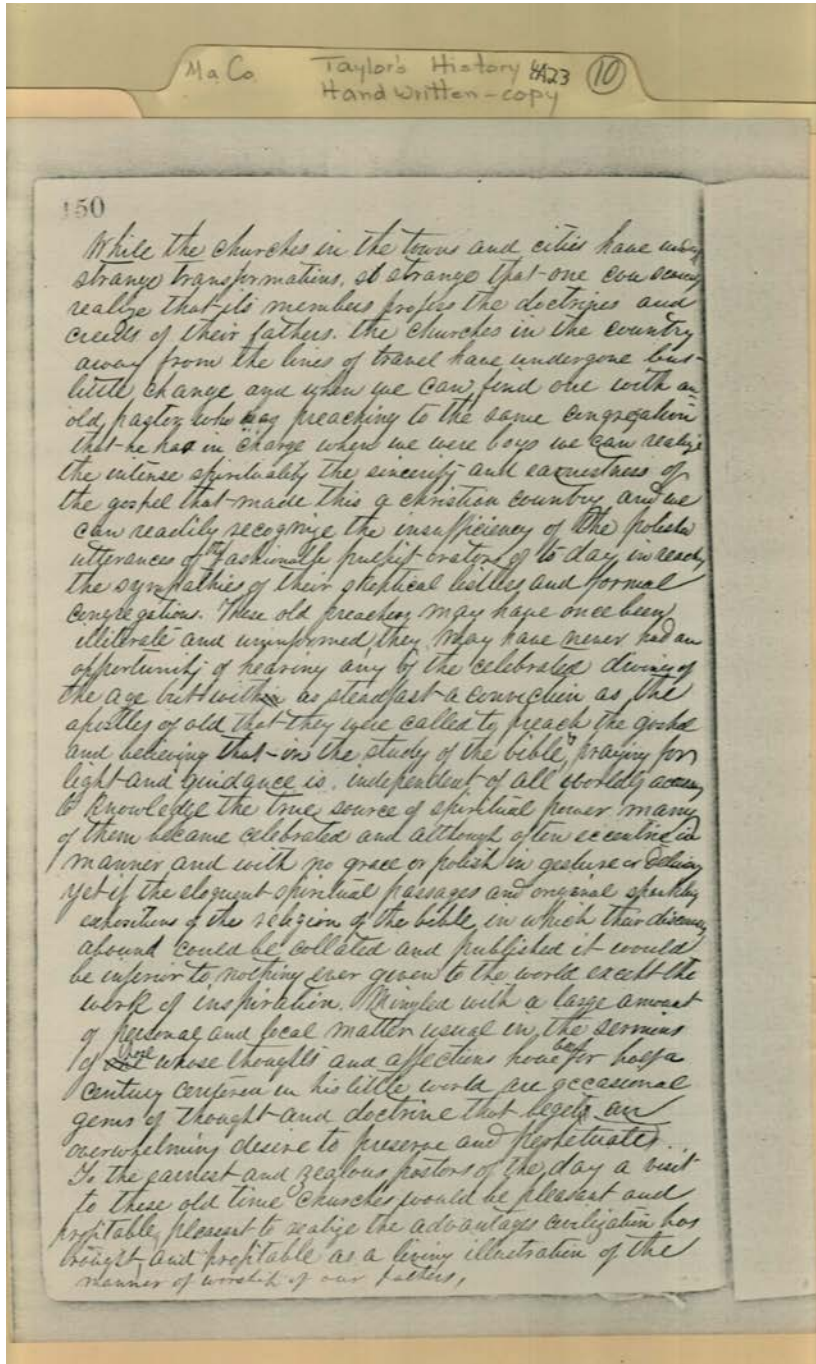 Ma. Co. Taylor's History 4A23 10
Handwritten-copy
150
While the churches in the towns and cities have
strange transformations, so strange that one can
realize that its members profess the doctrines and
creeds of their fathers. the churches in the country
away from the lines of travel have undergone but
little change and when we can find one with an
old pastor who preaching to the same congregation
that he had in charge when we were boys we can realize
the intense spirituality the sincerity and earnestness of
the gospel that made this a christian country and we
can readily recognize the insufficiency of the polished
utterances of the fashionable pulpit orators of to day in
the sympathies of their skeptical listless and formal
congregations. These old preachers may have once been
illiterate and uninformed, they may have never had an
opportunity of hearing any of the celebrated divines of
the age but with as steadfast a conviction as the
apostles of old that they were called to preach the gospel
and believing that in the study of the bible, praying for
light and guidance is, independent of all worldly
to knowledge the true source of spiritual power many
of them became celebrated and although often eccentric in
manner and with no grace or polish in gesture or delivery
yet if the eloquent spiritual passages and original
expositions of the religion of the bible, in which their
abound could be collated and published it would
be inferior to nothing ever given to the world except the
work of inspiration. Mingled with a large amount
of personal and local matter usual in the sermons
of whose thoughts and affections have been for half a
century centered in his little world are occasional
gems of thought and doctrine that begets an
overwhelming desire to preserve and perpetuate.
To the earnest and zealous pastors of the day a visit
to these old time churches would be pleasant and
profitable, pleasant to realize the advantages civilization has
brought and profitable as a living illustration of the
manner of worship of our fathers,